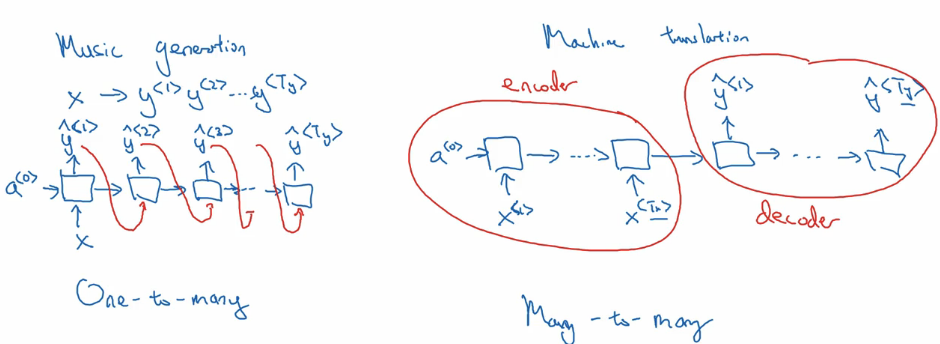 Music generation
x → y<1> y<2> ... y<Ty>
ŷ<1> ŷ<2> ŷ<3> ŷ<Ty>
a<0>
x
One-to-many
Machine translation
encoder
ŷ<1> ŷ<Ty>
a<0>
x<1> x<Tx>
decoder
Many-to-many